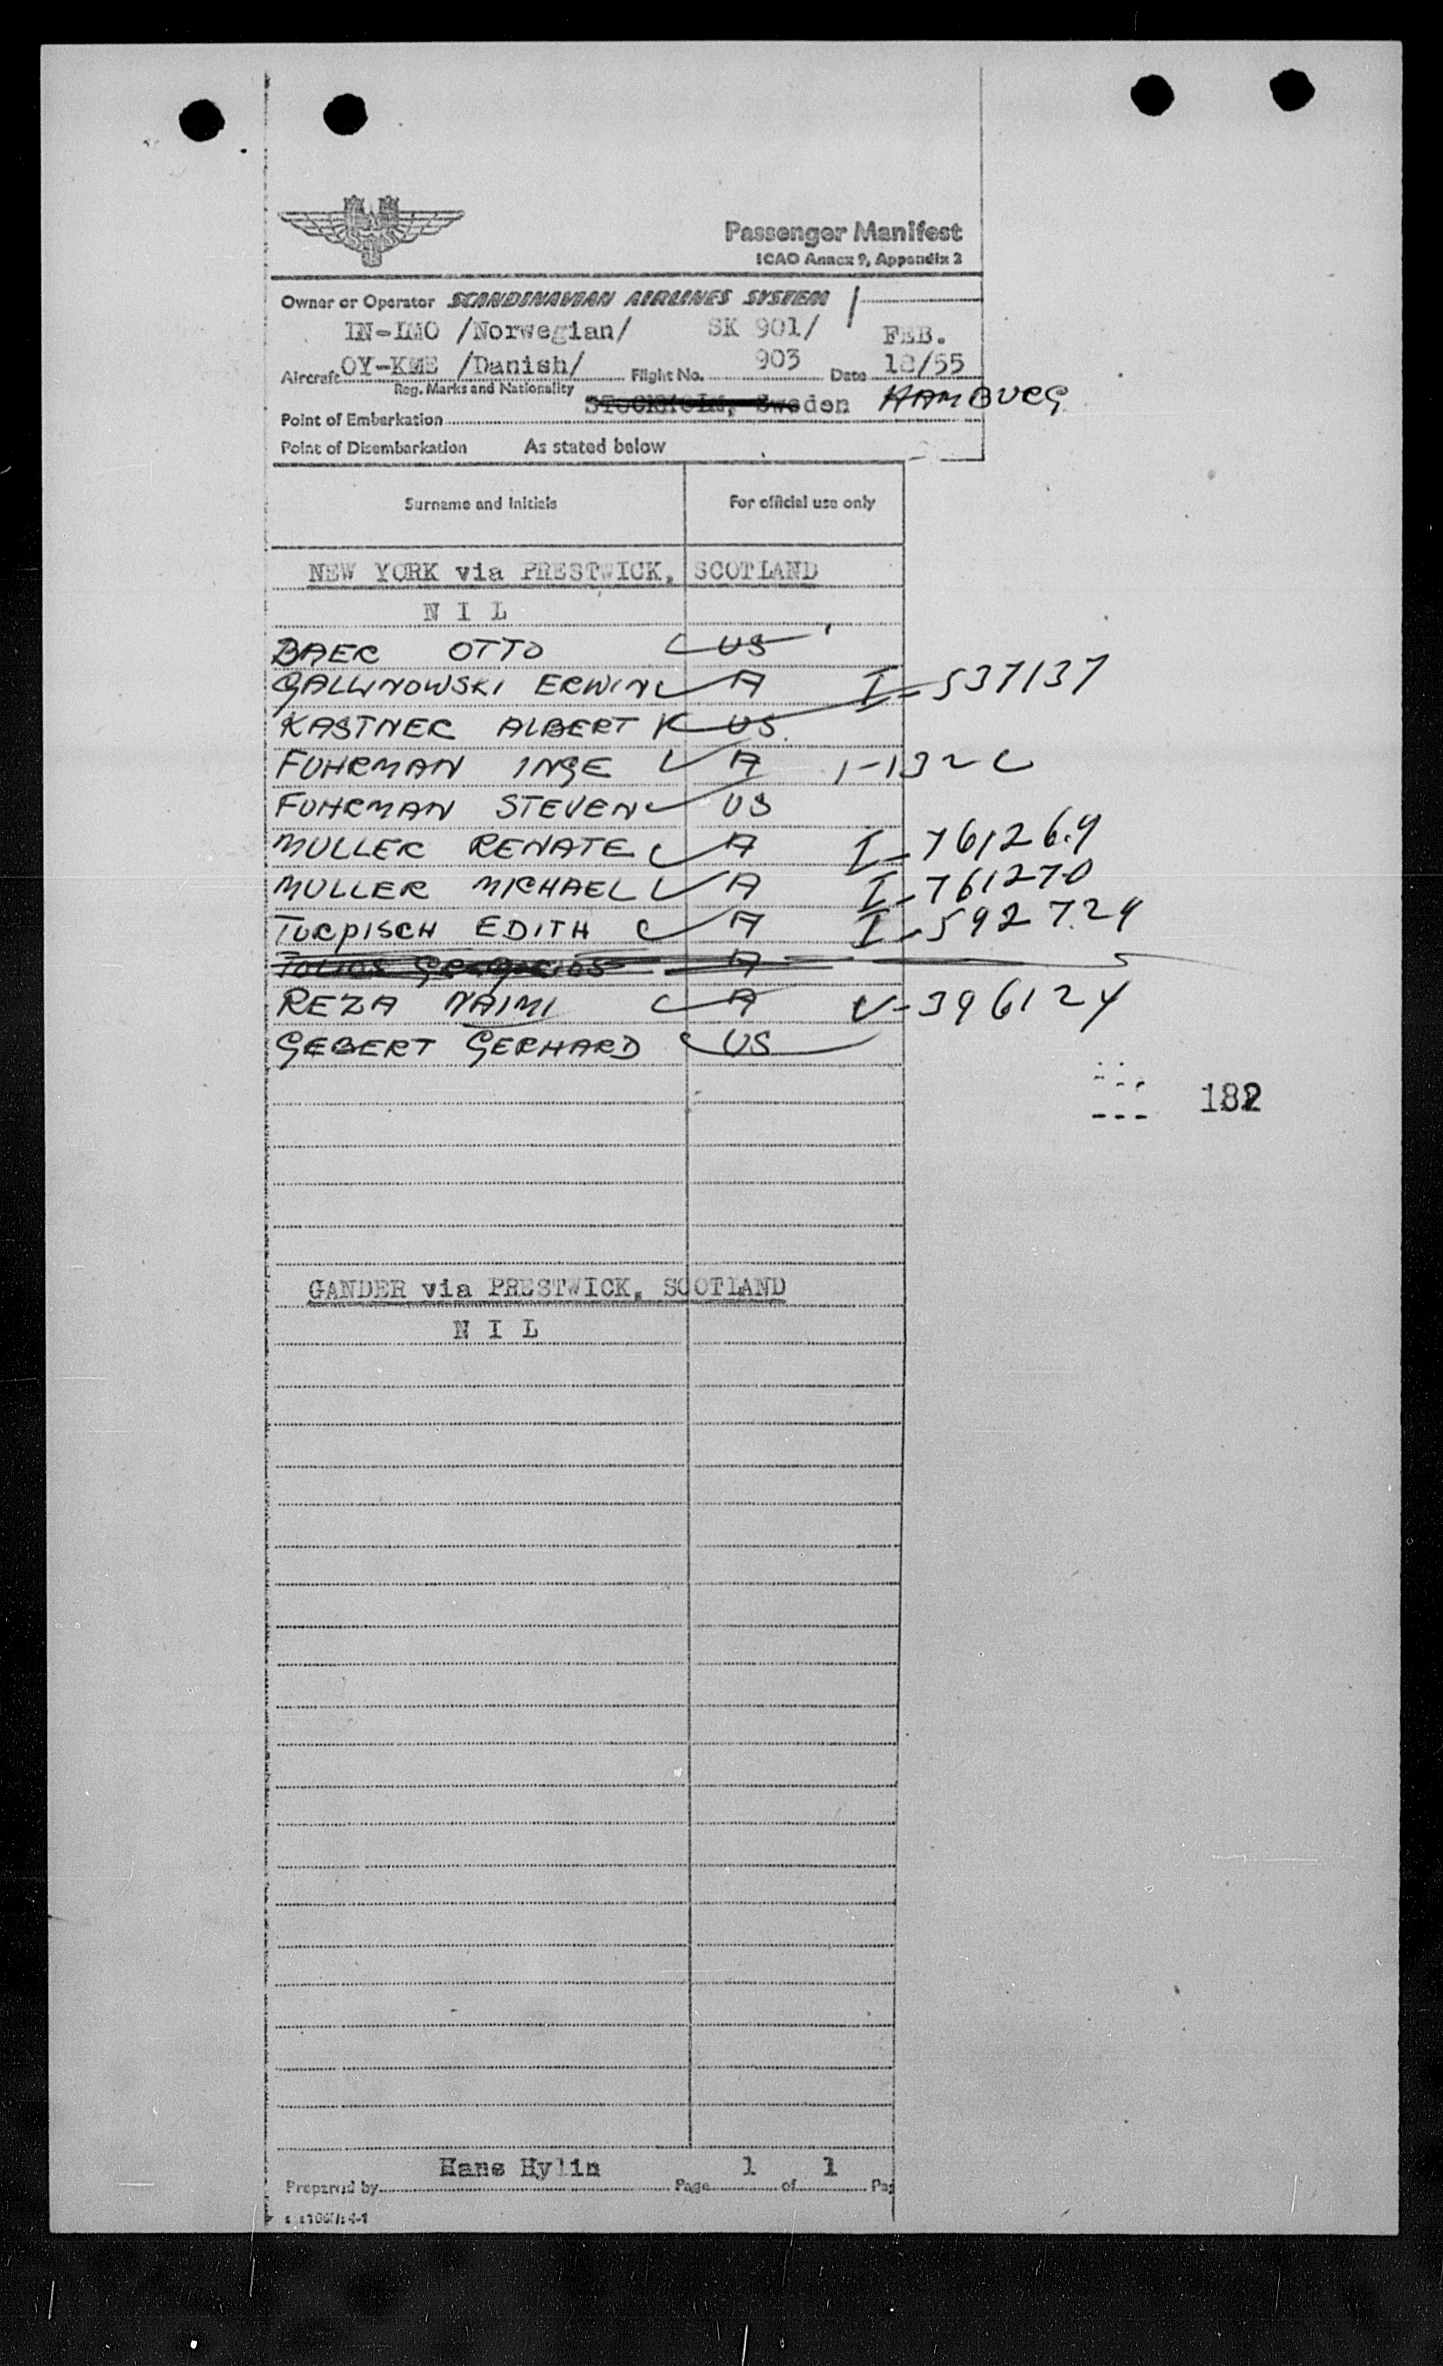 Passenger Manifest
ICAO Annex 9, Appendix 2
Owner or Operator SCANDINAVIAN AIRLINES SYSTEM
LN-LMO /Norwegian/ SK 901/ FEB.
Aircraft OY-KME /Danish/ Flight No. 903 Date 18/55
Reg. Marks and Nationality
Point of Embarkation Stockholm, Sweden HAMBURG
Point of Disembarkation As stated below
Surname and Initials For official use only
NEW YORK via PRESTWICK, SCOTLAND
N I L
BAER OTTO US
GALLINOWSKI ERWIN A I-537137
KASTNER ALBERT K US
FUHRMAN INGE A 1-132
FUHRMAN STEVEN US
MULLER RENATE A I-761269
MULLER MICHAEL A I-761270
TURPISCH EDITH A I-592729
A
REZA NAIMI A V-396124
GEBERT GERHARD US
182
GANDER via PRESTWICK, SCOTLAND
N I L
Prepared by Hans Hylin Page 1 of 1